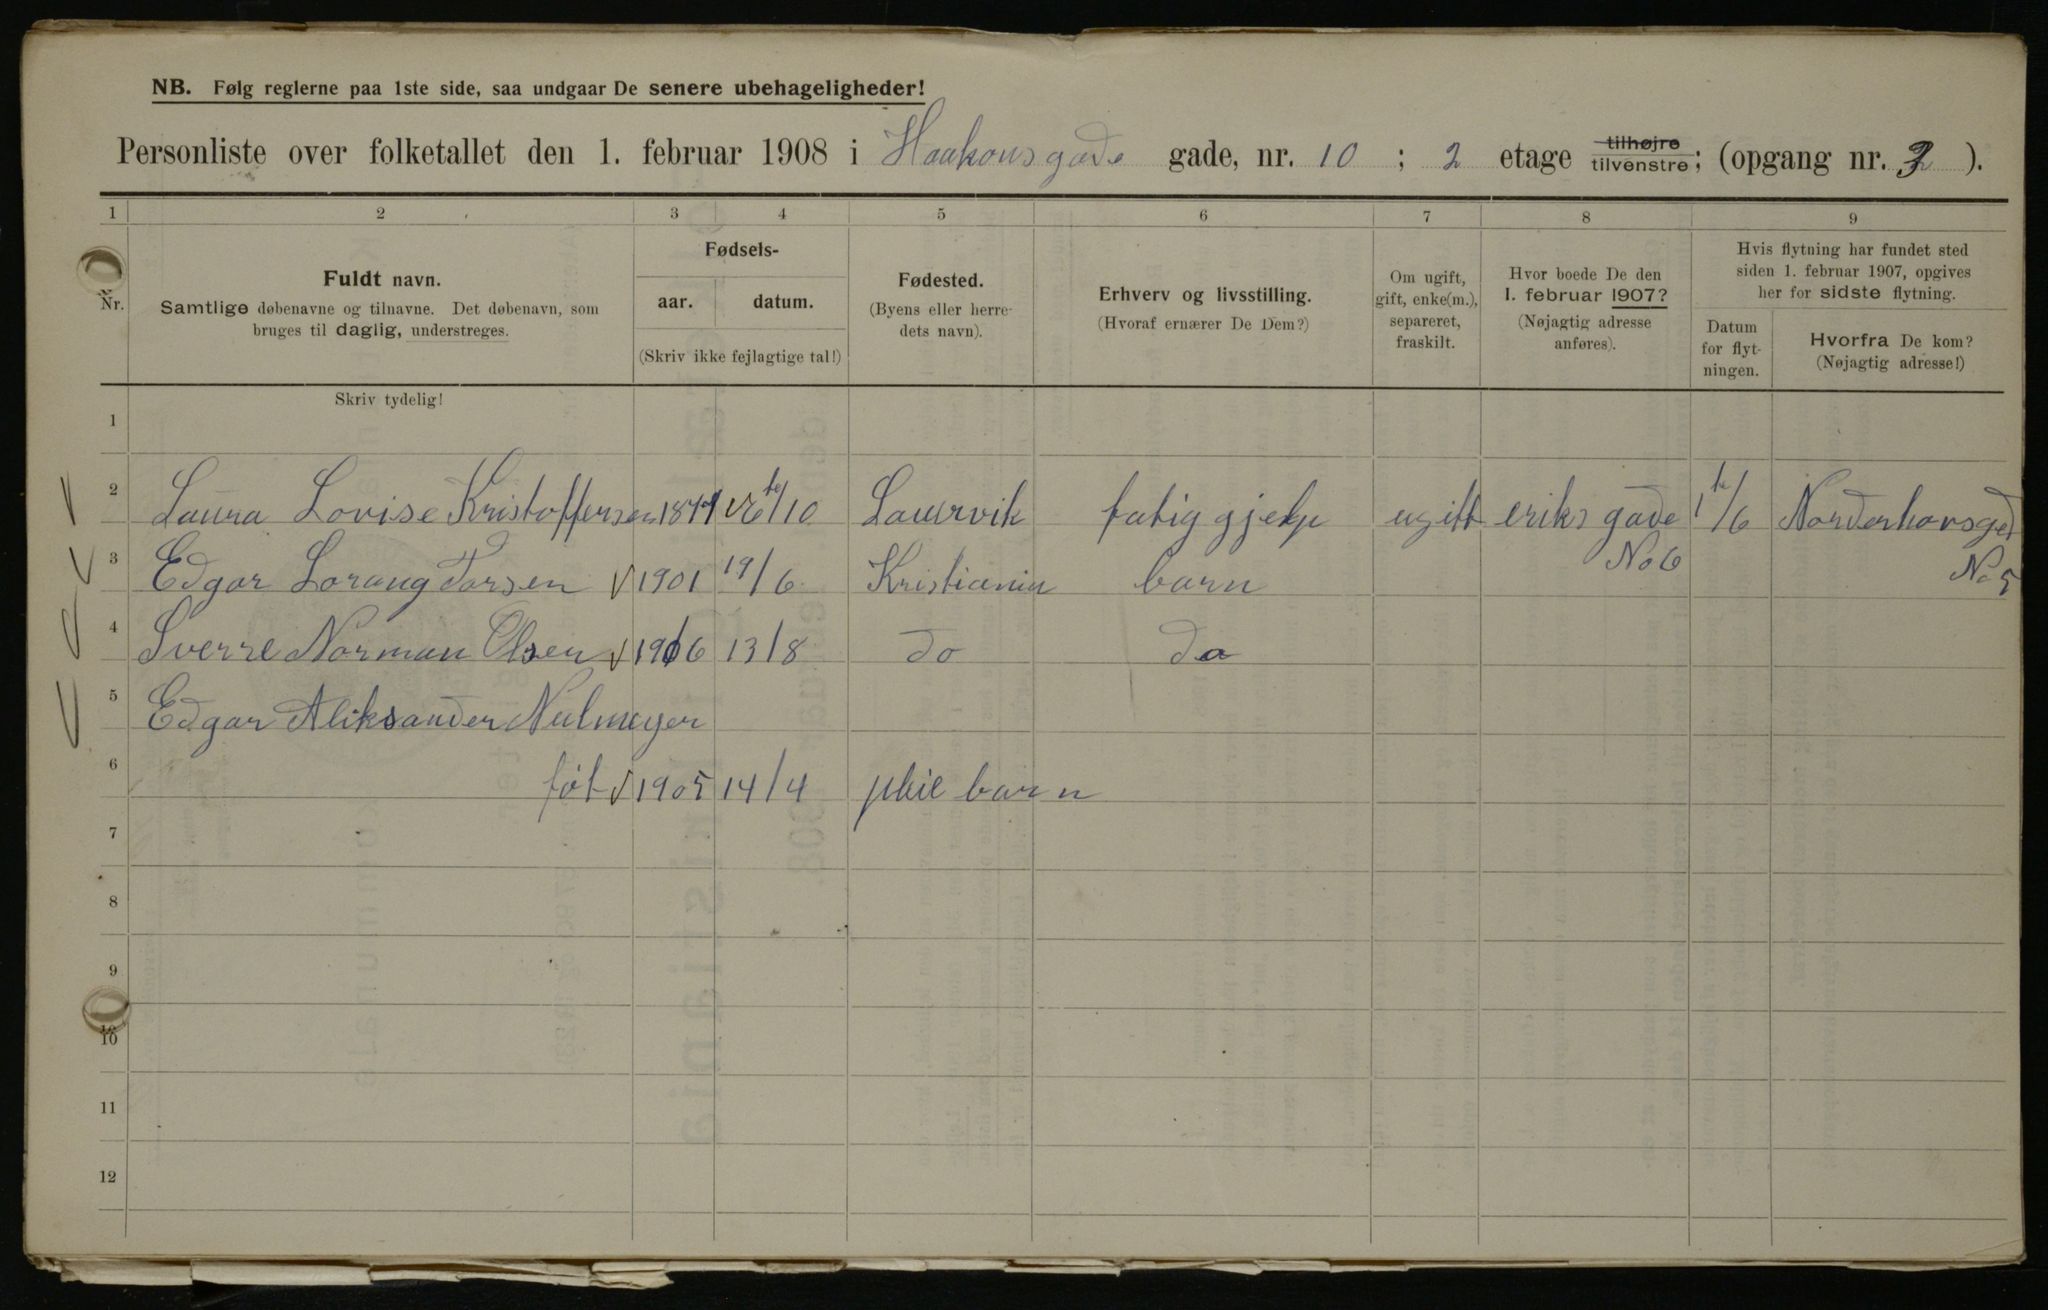 NB. Følg reglerne paa 1ste side, saa undgaar De senere ubehageligheder!
Personliste over folketallet den 1. februar 1908 i Haakonsgade gade, nr. 10 ; 2 etage tilhøjre tilvenstre; (opgang nr. 2 ).
1 2 3 4 5 6 7 8 9
Nr.
Fuldt navn.
Samtlige døbenavne og tilnavne. Det døbenavn, som
bruges til daglig, understreges.
Skriv tydelig!
Fødsels-
aar. datum.
(Skriv ikke fejlagtige tal!)
Fødested.
(Byens eller herre-
dets navn).
Erhverv og livsstilling.
(Hvoraf ernærer De Dem?)
Om ugift,
gift, enke(m.),
separeret,
fraskilt.
Hvor boede De den
1. februar 1907?
(Nøjagtig adresse
anføres).
Hvis flytning har fundet sted
siden 1. februar 1907, opgives
her for sidste flytning.
Datum
for flyt-
ningen.
Hvorfra De kom?
(Nøjagtig adresse!)
1
2 Laura Lovise Kristoffersen /10 Laurvik fatig gjelp ugift eriks gade 1te/6 Norderhovsgd
3 Edgar Lorang Torsen 1901 19/6 Kristiania barn No 6 No 5
4 Sverre Norman Olsen 1906 13/8 do do
5 Edgar Aliksander
6 føt 1905 14/4 pleie barn
7
8
9
10
11
12